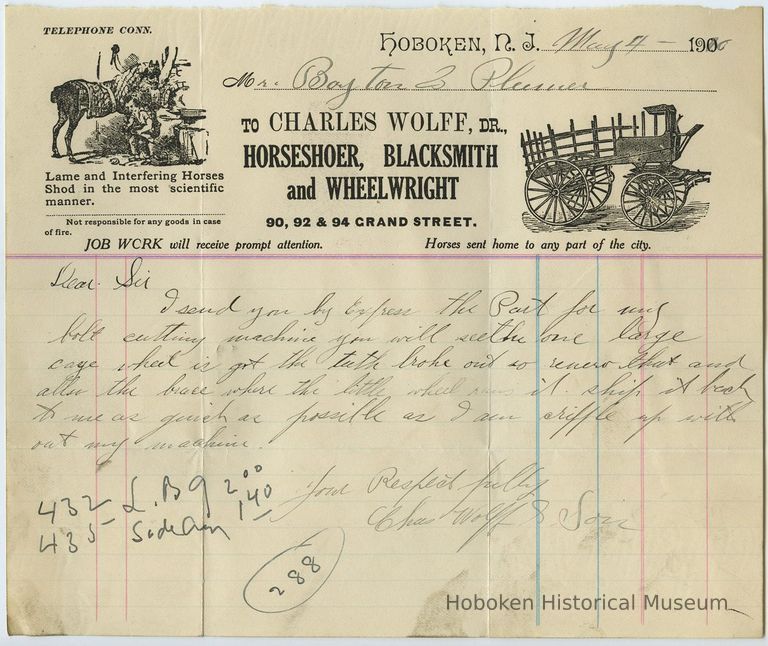 TELEPHONE CONN.
HOBOKEN, N. J. May 4 - 1906
Mr. Boyton & Plumer
TO CHARLES WOLFF, DR.,
HORSESHOER, BLACKSMITH
and WHEELWRIGHT
90, 92 & 94 GRAND STREET.
Lame and Interfering Horses
Shod in the most scientific
manner.
Not responsible for any goods in case
of fire.
JOB WORK will receive prompt attention. Horses sent home to any part of the city.
Dear Sir
I send you by Express the Part for my
bolt cutting machine you will see the one large
cage wheel is got the teeth broke out so renew that and
the brace where the little wheel runs it ship it back
to me as quick as possible as I am criffle up with
out my machine.
Your Respectfully
Chas Wolff & Son
432 - L. B 9 2.00
435 - Side 1.40
288
Hoboken Historical Museum